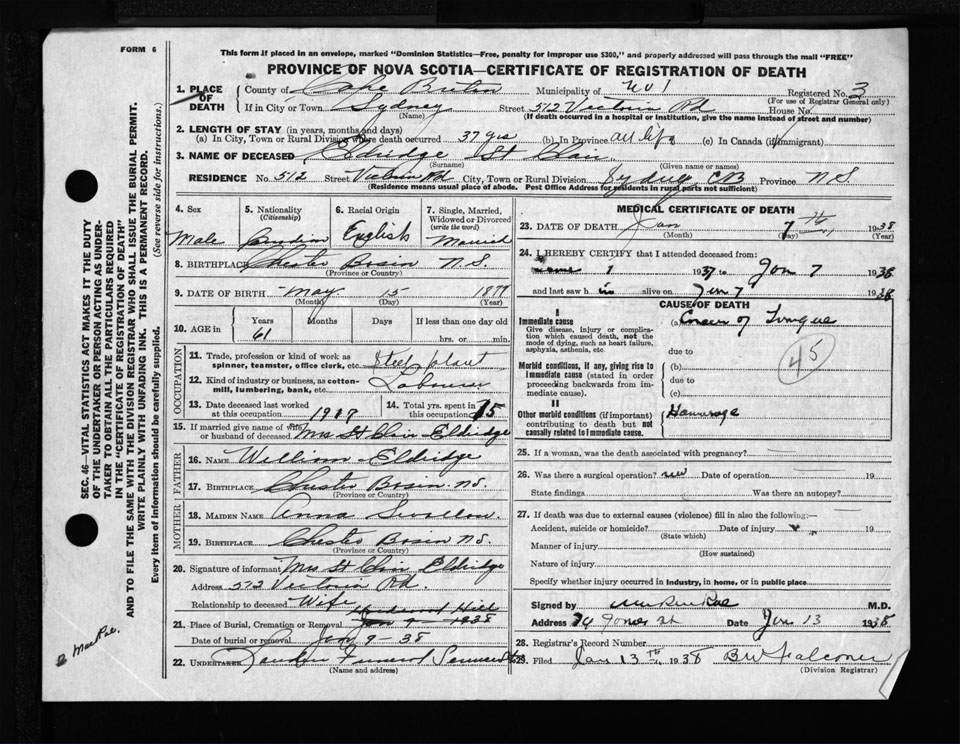 FORM 6
This form if placed in an envelope, marked "Dominion Statistics—Free, penalty for improper use $300," and properly addressed will pass through the mail "FREE"
PROVINCE OF NOVA SCOTIA—CERTIFICATE OF REGISTRATION OF DEATH
1. PLACE OF DEATH
County of Cape Breton Municipality of No 1 Registered No. 3
(For use of Registrar General only)
If in City or Town Sydney Street 512 Victoria Rd House No.
(Name) (If death occurred in a hospital or institution, give the name instead of street and number)
2. LENGTH OF STAY (in years, months and days)
(a) In City, Town or Rural Division where death occurred 37 yrs (b) In Province all life (c) In Canada (if immigrant)
3. NAME OF DECEASED Eldridge St Clair
(Surname) (Given name or names)
RESIDENCE No. 512 Street Victoria Rd City, Town or Rural Division Sydney CB Province N.S
(Residence means usual place of abode. Post Office Address for residents in rural parts not sufficient)
4. Sex
Male
5. Nationality
(Citizenship)
Canadian
6. Racial Origin
English
7. Single, Married, Widowed or Divorced
(write the word)
Married
8. BIRTHPLACE Chester Basin N.S.
(Province or Country)
9. DATE OF BIRTH May 15
(Month) (Day) (Year)
10. AGE in
Years Months Days If less than one day old
61 hrs. or min.
OCCUPATION
11. Trade, profession or kind of work as spinner, teamster, office clerk, etc. Steel plant
12. Kind of industry or business, as cotton-mill, lumbering, bank, etc. Labourer
13. Date deceased last worked at this occupation
14. Total yrs. spent in this occupation 15
15. If married give name of wife or husband of deceased Mrs St Clair Eldridge
FATHER
16. Name William Eldridge
17. Birthplace Chester Basin N.S.
(Province or Country)
MOTHER
18. Maiden Name Anna Swallow
19. Birthplace Chester Basin N.S.
(Province or Country)
20. Signature of informant Mrs St Clair Eldridge
Address 572 Victoria Rd.
Relationship to deceased Wife
Hardwood Hill
21. Place of Burial, Cremation or Removal Jan 9 - 1938
Date of burial or removal Jan 9 - 38
22. UNDERTAKER Funeral Service
(Name and address)
MEDICAL CERTIFICATE OF DEATH
23. DATE OF DEATH Jan 7th 1938
(Month) (Day) (Year)
24. I HEREBY CERTIFY that I attended deceased from:
1 1937 to Jan 7 1938
and last saw him alive on Jan 7 1938
CAUSE OF DEATH
I
Immediate cause
Give disease, injury or complication which caused death, not the mode of dying, such as heart failure, asphyxia, asthenia, etc.
(a) Cancer of Tongue
due to
45
Morbid conditions, if any, giving rise to immediate cause (stated in order proceeding backwards from immediate cause).
(b)
due to
(c)
II
Other morbid conditions (if important) contributing to death but not causally related to immediate cause.
Hemorrage
25. If a woman, was the death associated with pregnancy?
26. Was there a surgical operation? Date of operation 19
State findings Was there an autopsy?
27. If death was due to external causes (violence) fill in also the following:
Accident, suicide or homicide? Date of injury 19
(State which)
Manner of injury
(How sustained)
Nature of injury
Specify whether injury occurred in industry, in home, or in public place
Signed by M.D.
Address 74 Jones St Date Jan 13 1938
28. Registrar's Record Number
29. Filed Jan 13th 1938 B W Falconer
(Division Registrar)
SEC. 46—VITAL STATISTICS ACT MAKES IT THE DUTY
OF THE UNDERTAKER OR PERSON ACTING AS UNDER-
TAKER TO OBTAIN ALL THE PARTICULARS REQUIRED
IN THE "CERTIFICATE OF REGISTRATION OF DEATH"
AND TO FILE THE SAME WITH THE DIVISION REGISTRAR WHO SHALL ISSUE THE BURIAL PERMIT.
WRITE PLAINLY WITH UNFADING INK. THIS IS A PERMANENT RECORD.
Every item of Information should be carefully supplied. (See reverse side for instructions.)
MacRae.